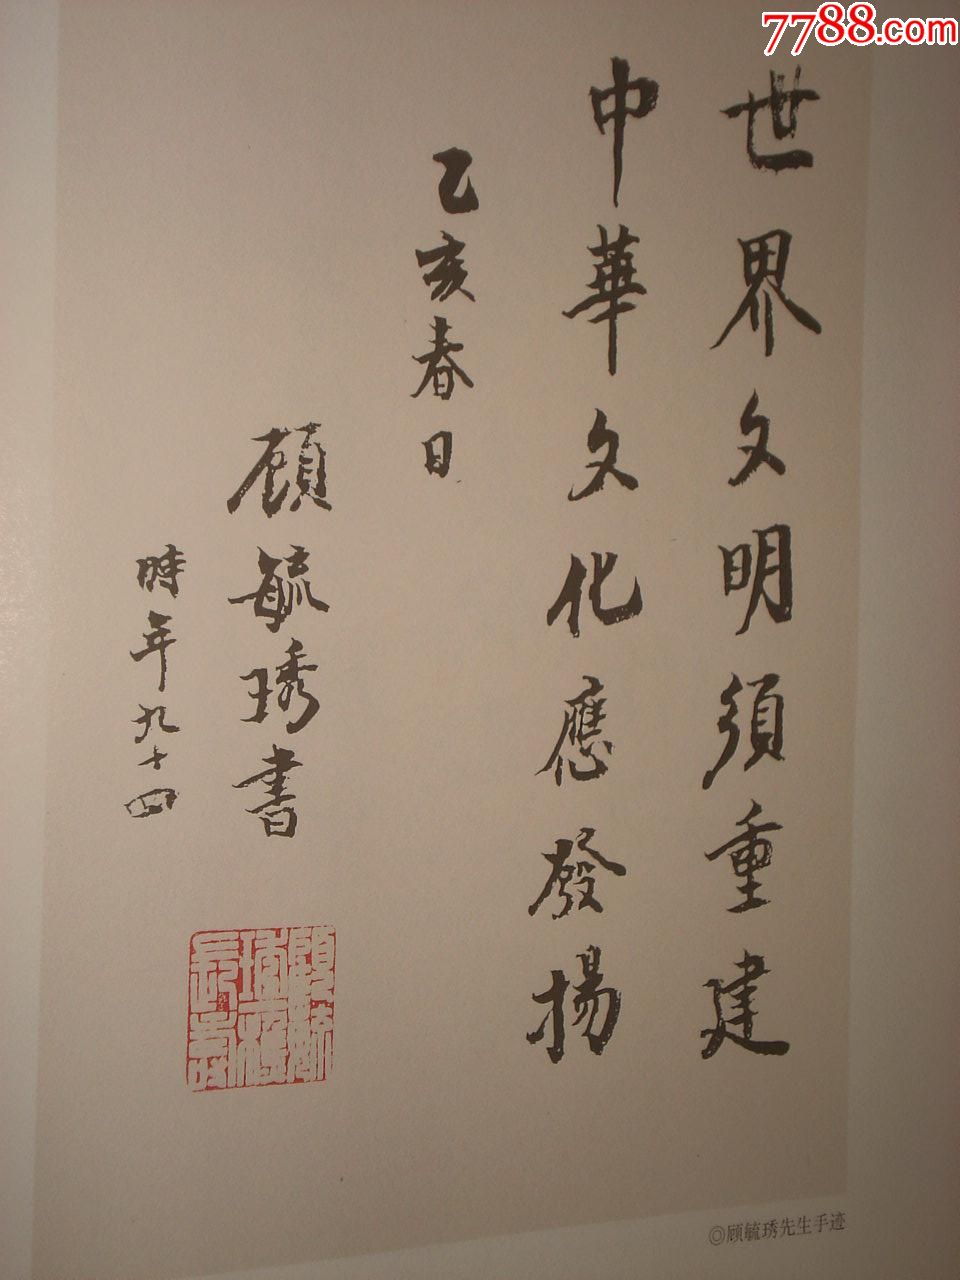 7788.com
世界文明須重建
中華文化應發揚
乙亥春日
顧毓琇書
時年九十四
◎顾毓琇先生手迹